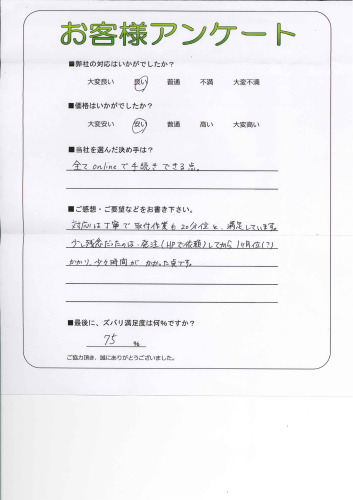 お客様アンケート
■弊社の対応はいかがでしたか?
大変良い 良い 普通 不満 大変不満
■価格はいかがでしたか?
大変安い 安い 普通 高い 大変高い
■当社を選んだ決め手は?
全てonlineで手続きできる点。
■ご感想・ご要望などをお書き下さい。
対応は丁寧で取付作業も20分位と、満足しています。
少し残念だったのは、発注(HPで依頼)してから1ヶ月位(?)
かかり、少々時間がかかった点です。
■最後に、ズバリ満足度は何%ですか?
75 %
ご協力頂き、誠にありがとうございました。